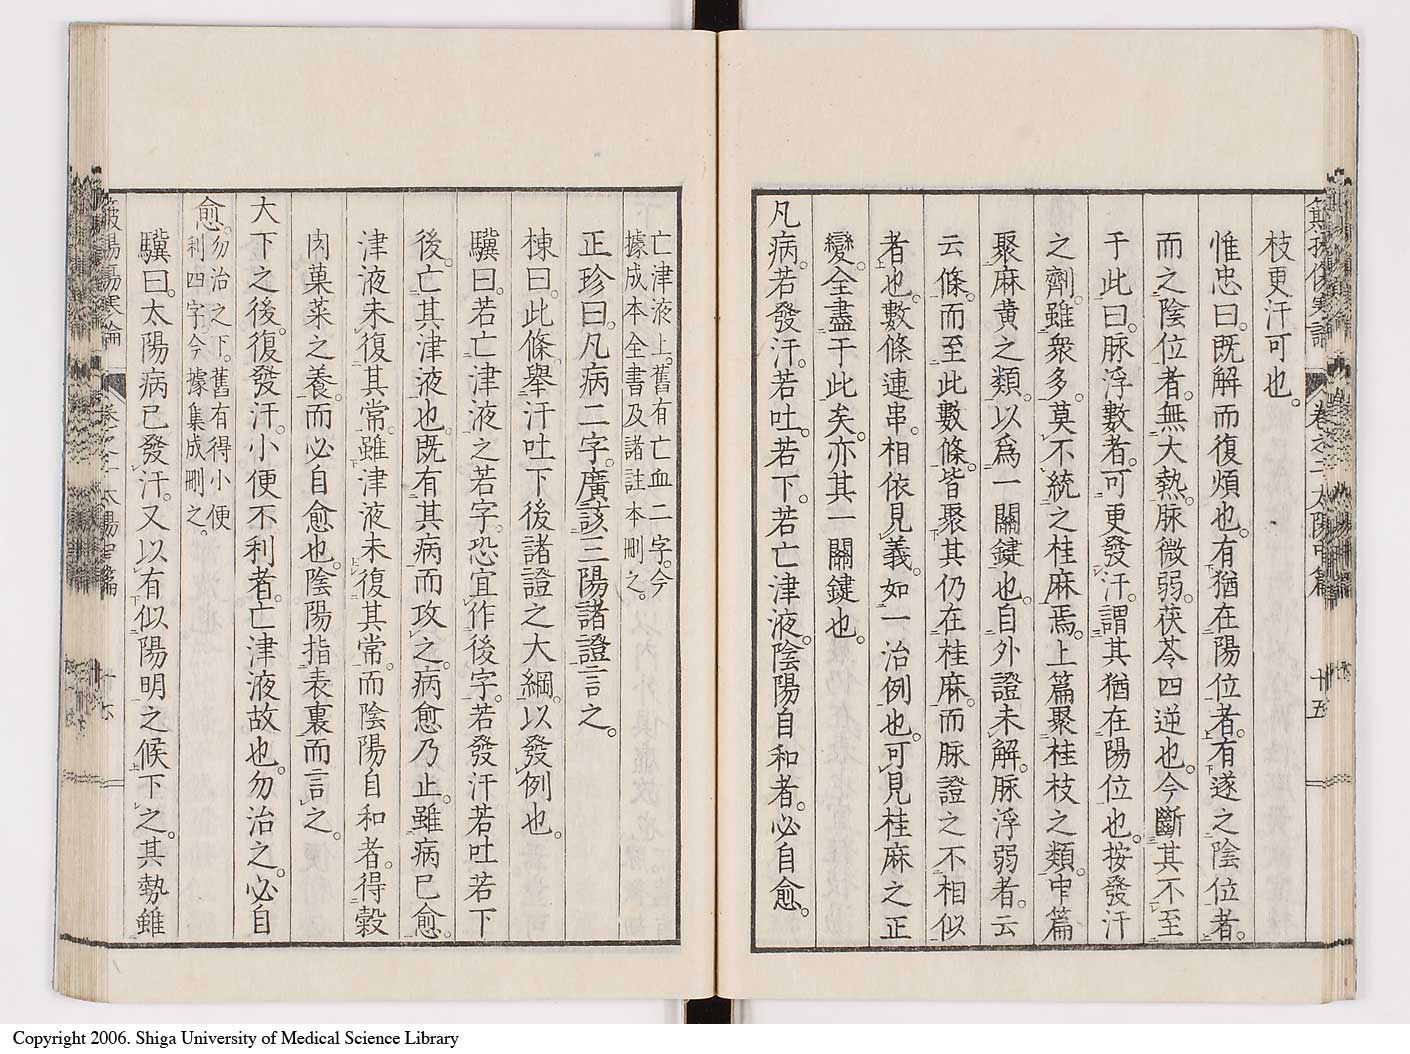 枝更汗可也。
惟忠曰。既解而復煩也。有猶在陽位者。有遂之陰位者。
而之陰位者。無大熱。脉微弱。茯苓四逆也。今斷其不至
于此曰。脉浮數者。可更發汗。謂其猶在陽位也。按發汗
之劑。雖衆多。莫不統之桂麻焉。上篇聚桂枝之類。中篇
聚麻黄之類。以爲一關鍵也。自外證未解。脉浮弱者。云
云條。而至此數條。皆聚其仍在桂麻。而脉證之不相似
者也。數條連串。相依見義。如一治例也。可見桂麻之正
變。全盡于此矣。亦其一關鍵也。
凡病。若發汗。若吐。若下。若亡津液。陰陽自和者。必自愈。
卷之二 太陽中篇 十五
亡津液上。舊有亡血二字。今
據成本全書及諸註本刪之。
正珍曰。凡病二字。廣該三陽諸證言之。
棟曰。此條。舉汗吐下後諸證之大綱。以發例也。
驥曰。若亡津液之若字。恐宜作後字。若發汗若吐若下
後。亡其津液也。既有其病而攻之。病愈乃止。雖病已愈。
津液未復其常。雖津液未復其常。而陰陽自和者。得穀
肉菓菜之養。而必自愈也。陰陽指表裏而言之。
大下之後。復發汗。小便不利者。亡津液故也。勿治之。必自
愈。勿治之下。舊有得小便
利四字今據集成刪之。
驥曰。太陽病已發汗。又以有似陽明之候下之。其勢雖